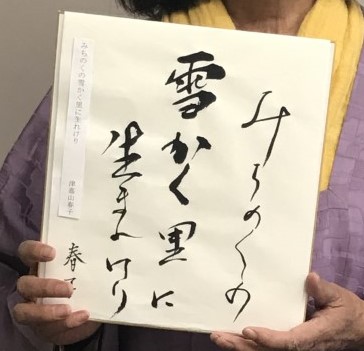 みちのくの
雪かく里に
生まれけり
春
みちのくの雪かく里に生れけり
津嘉山春子